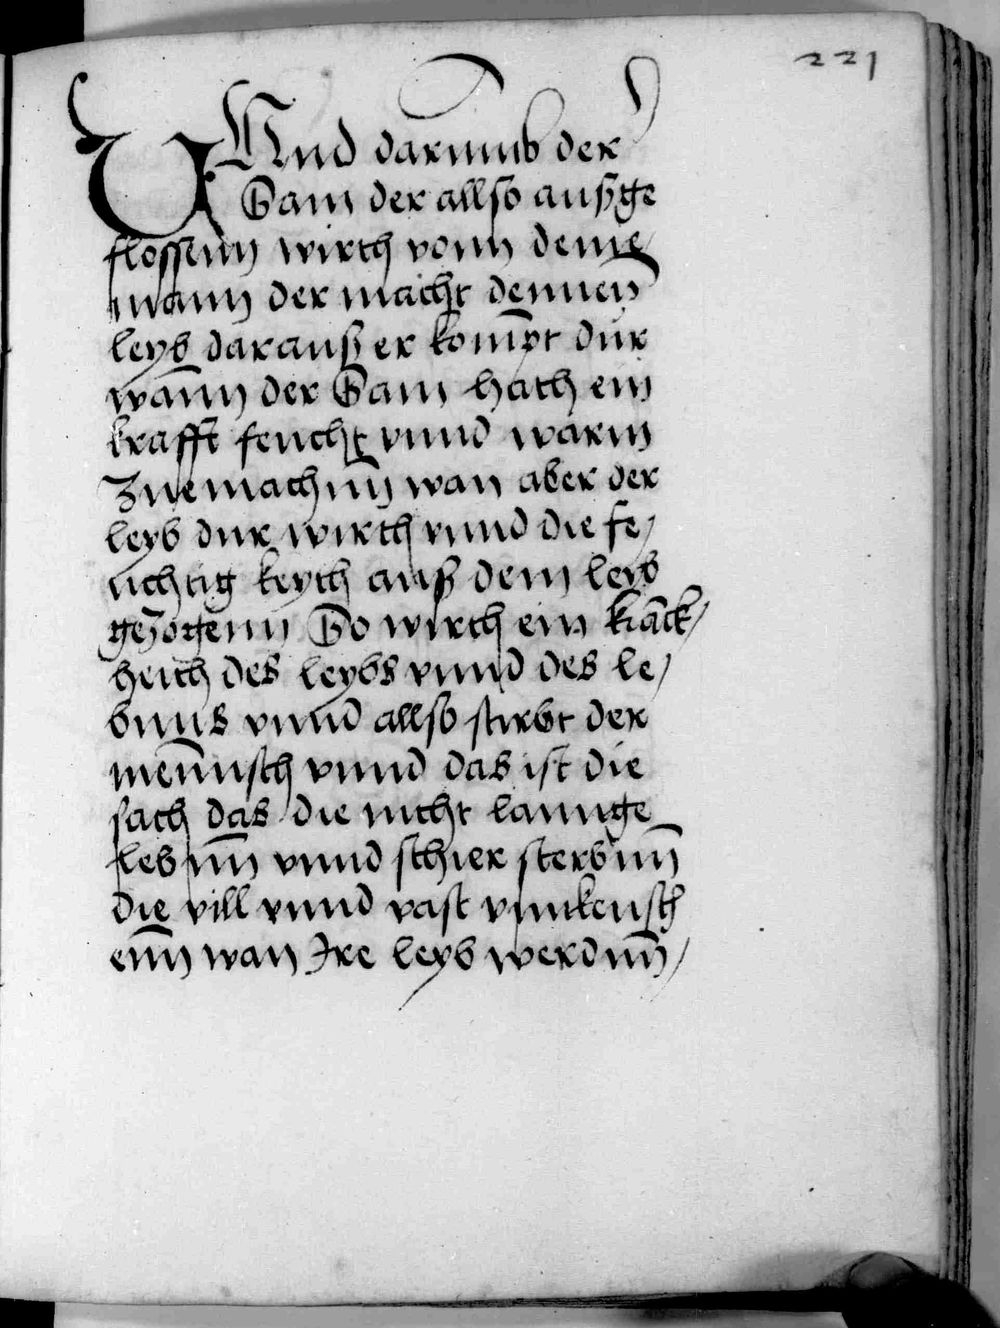 221
VNnd darumb der
Sam der allso außge
flossenn wirth vonn deme
mann der macht dennen
leyb darauß er kompt dür
wann der Sam hath ein
krafft feucht vnnd warm
Zuemachnn wan aber der
leyb dur wirth vnnd die fe/
uchtig keyth auß dem leyb
gezogenn So wirth ein kranck/
heith des leybs vnnd des le/
bnns vnnd allso stirbt der
mennsch vnnd das ist die
sach das die nicht lannge
lebnn vnnd schier sterbnn
die vill vnnd vast vnnkeusch
einn wan Ire leyb werdnn/